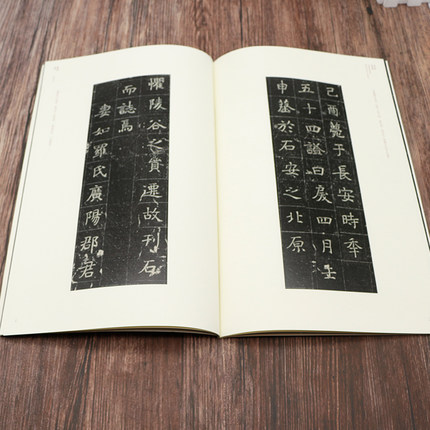 己酉薨于長安時年
五十四謚曰戾四月壬
申墓於石安之北原
懼陵谷之貿遷故刊石
而誌焉
妻如羅氏廣陽郡君